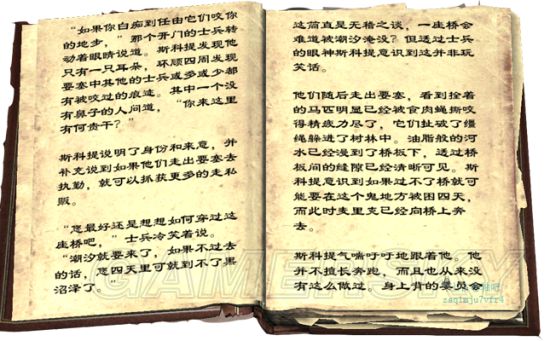 “如果你白痴到任由它们咬你
的地步，”那个开门的士兵转
动着眼睛说道。斯科提发现他
只有一只耳朵，环顾四周发现
要塞中其他的士兵或多或少都
有被咬过的痕迹。其中一个没
有鼻子的人问道，“你来这里
有何贵干？”
斯科提说明了身份和来意，并
补充说到如果他们走出要塞去
执勤，就可以抓获更多的走私
贩。
“您最好还是想想如何穿过这
座桥吧，”士兵冷笑着说。
“潮汐就要来了，如果不过去
的话，您四天里可就到不了黑
沼泽了。”
这简直是无稽之谈，一座桥会
难道被潮汐淹没？但透过士兵
的眼神斯科提意识到这并非玩
笑话。
他们随后走出要塞，看到拴着
的马匹明显已经被食肉蝇撕咬
得精疲力尽了，它们扯破了缰
绳躲进了树林中。油脂般的河
水已经漫到了桥板下，透过桥
板间的缝隙已经清晰可见。斯
科提意识到如果过不了桥就可
能要在这个鬼地方被困四天，
而此时麦里克已经向桥上奔
去。
斯科提气喘吁吁地跟着他，他
并不擅长奔跑，而且也从来没
有这么做过，身上背的委员会
GAMERSKY
zaq1mju7vfr4